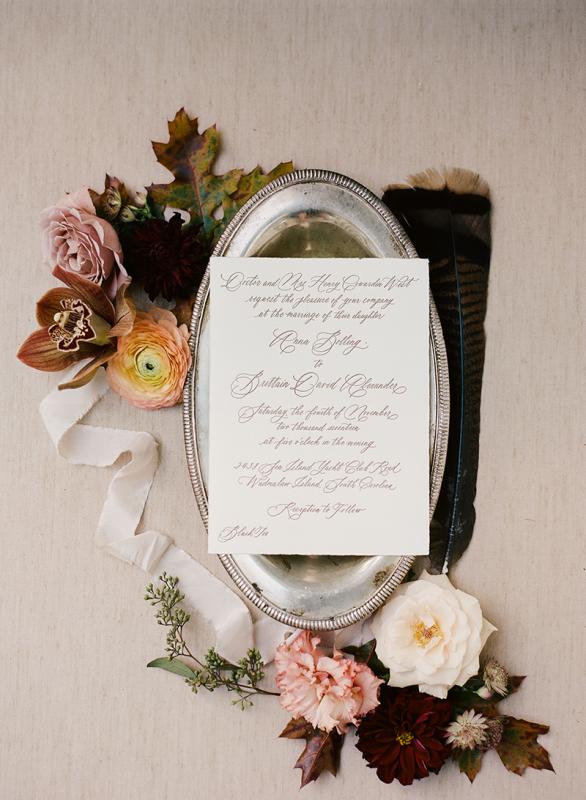 Doctor and Mrs. Henry Guerdin West
request the pleasure of your company
at the marriage of their daughter
Anna Belling
to
Brittain David Alexander
Saturday, the fourth of November
two thousand seventeen
at five o'clock in the evening
Sea Island Yacht Club Road
Wadmalaw Island, South Carolina
Reception to Follow
Black Tie